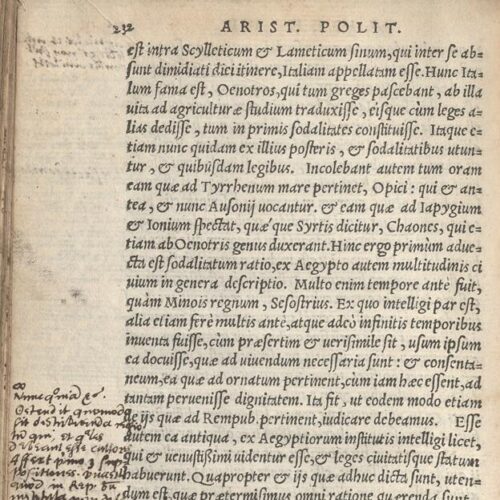 232 ARIST. POLIT.
est intra Scylleticum & Lameticum sinum, qui inter se ab-
sunt dimidiati diei itinere, Italiam appellatam esse. Hunc Ita-
lum fama est, Oenotros, qui tum greges pascebant, ab illa
vita ad agriculturæ studium traduxisse, eisque cùm leges a-
lias dedisse, tum in primis sodalitates constituisse. Itaque e-
tiam nunc quidam ex illius posteris, & sodalitatibus utun-
tur, & quibusdam legibus. Incolebant autem tum oram
eam quæ ad Tyrrhenum mare pertinet, Opici: qui & an-
tea, & nunc Ausonij vocantur. & eam quæ ad Iapygium
& Ionium spectat, quæ'que Syrtis dicitur, Chaones, qui e-
tiam ab Oenotris genus duxerant. Hinc ergo primùm adue-
cta est sodalitatum ratio, ex Aegypto autem multitudinis ci
uium in genera descriptio. Multo enim tempore ante fuit,
quàm Minois regnum, Sesostrius. Ex quo intelligi par est,
alia etiam ferè multis ante, atque adeò infinitis temporibus
inuenta fuisse, cùm præsertim & verisimile sit, usum ipsum
ea docuisse, quæ ad uiuendum necessaria sunt: & consenta-
neum, ea quæ ad ornatum pertinent, cùm iam hæc essent, ad
tantam peruenisse dignitatem. Ita fit, ut eodem modo etiam
de ijs quæ ad Rempub. pertinent, iudicare debeamus. Esse
autem ea antiqua, ex Aegyptiorum institutis intelligi licet,
qui & uenustissimi uidentur esse, & leges ciuitatisque statum
habuerunt. Quapropter & ijs quæ adhuc dicta sunt, uten-
dum est, quæ prætermisimus omni ratione quærenda sunt.
Ostendit quomodo